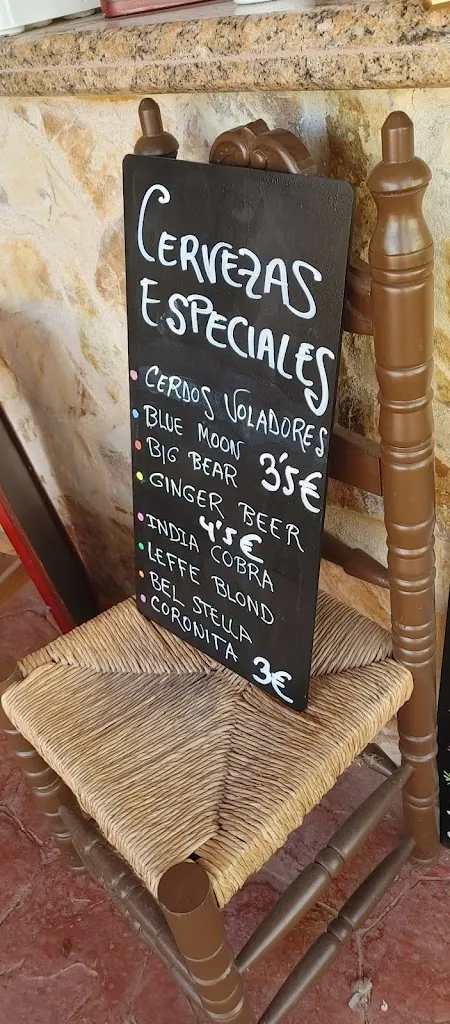 CERVEZAS
ESPECIALES
CERDOS VOLADORES
BLUE MOON
BIG BEAR 3'5€
GINGER BEER
4'5€
INDIA COBRA
LEFFE BLOND
BEL STELLA
CORONITA 3€